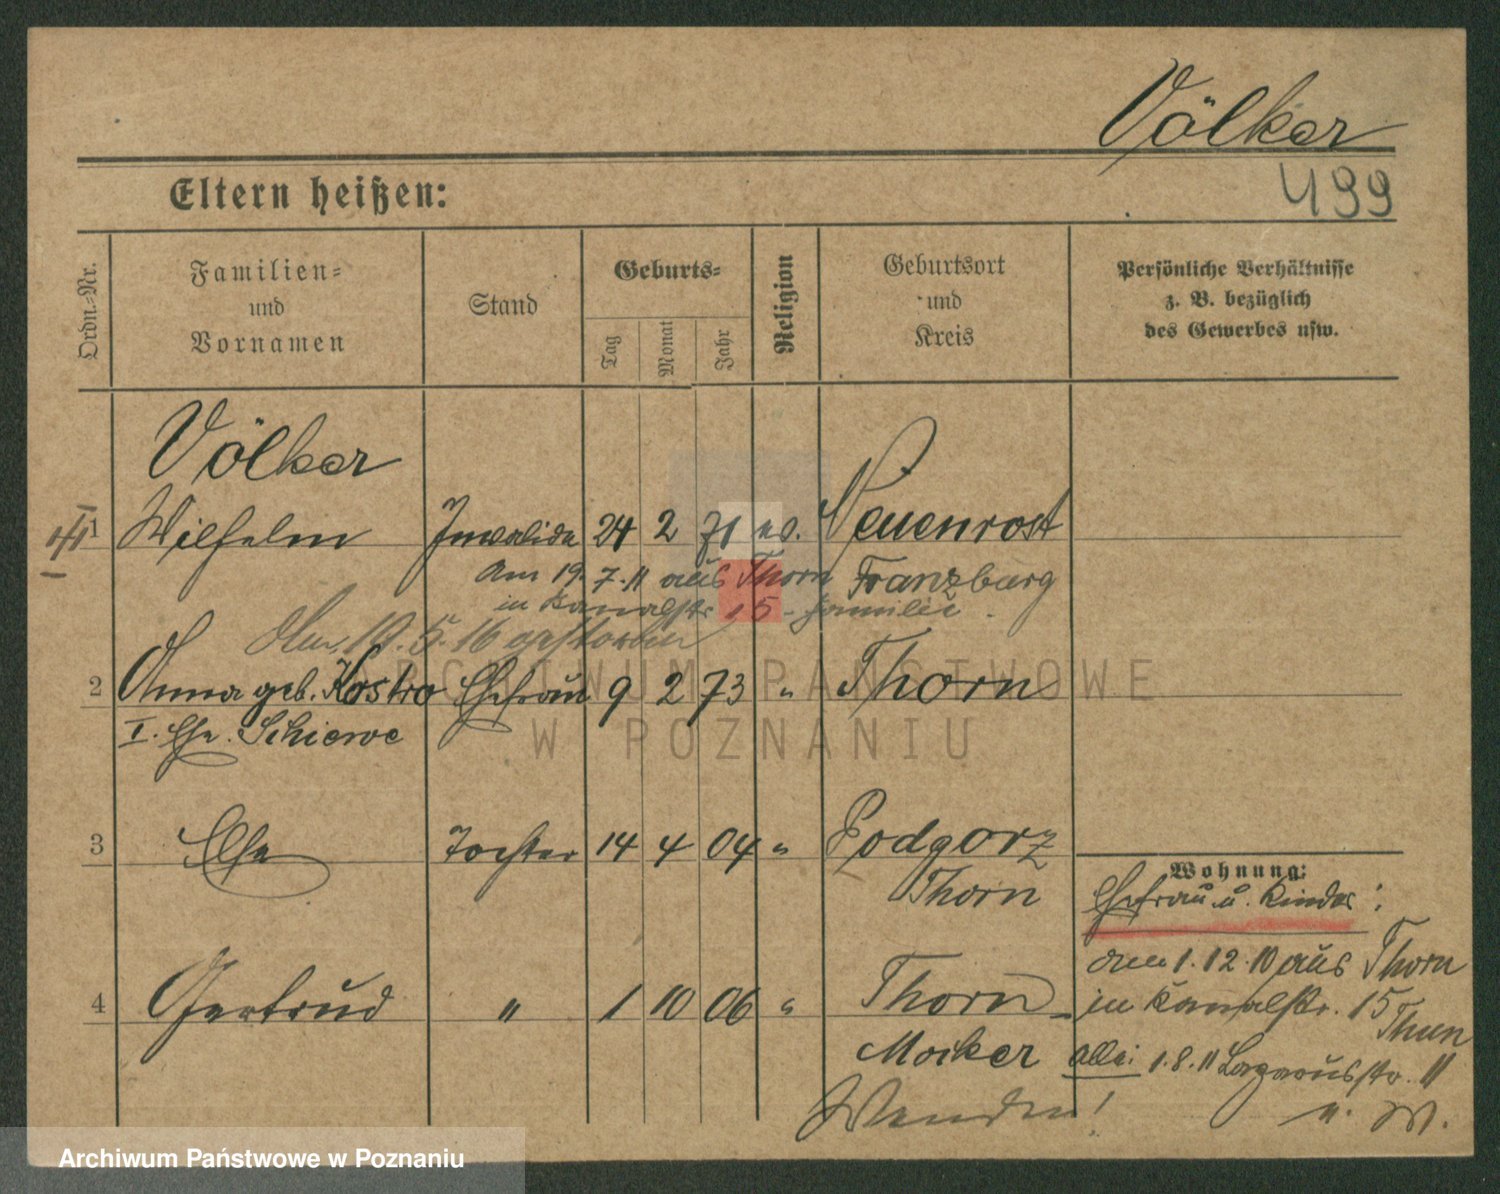 Völker
Eltern heißen:
499
Ordn.-Nr.
Familien-
und
Vornamen
Stand
Geburts-
Tag
Monat
Jahr
Religion
Geburtsort
und
Kreis
Persönliche Verhältnisse
z. B. bezüglich
des Gewerbes usw.
Völker
1 Wilhelm Invalide 24 2 71 Neuenrost
Am 19.7.11 aus Thorn Franzburg
in Kanalstr 15 - Familie
Am 19.5.16 gestorben
2 Anna geb. Kostro Ehefrau 9 2 73 " Thorn
I. Ehe. Schiewe
3 Tochter 14 4 04 " Podgorz
Thorn
Wohnung:
Ehefrau u. Kinder:
am 1.12.10 aus Thorn
4 Gertrud " 1 10 06 " Thorn-
in Kanalstr. 15
Mocker
alle: 1.8.11 Lazarusstr. 11
Wenden!
u. W.
ARCHIWUM PAŃSTWOWE
W POZNANIU
Archiwum Państwowe w Poznaniu